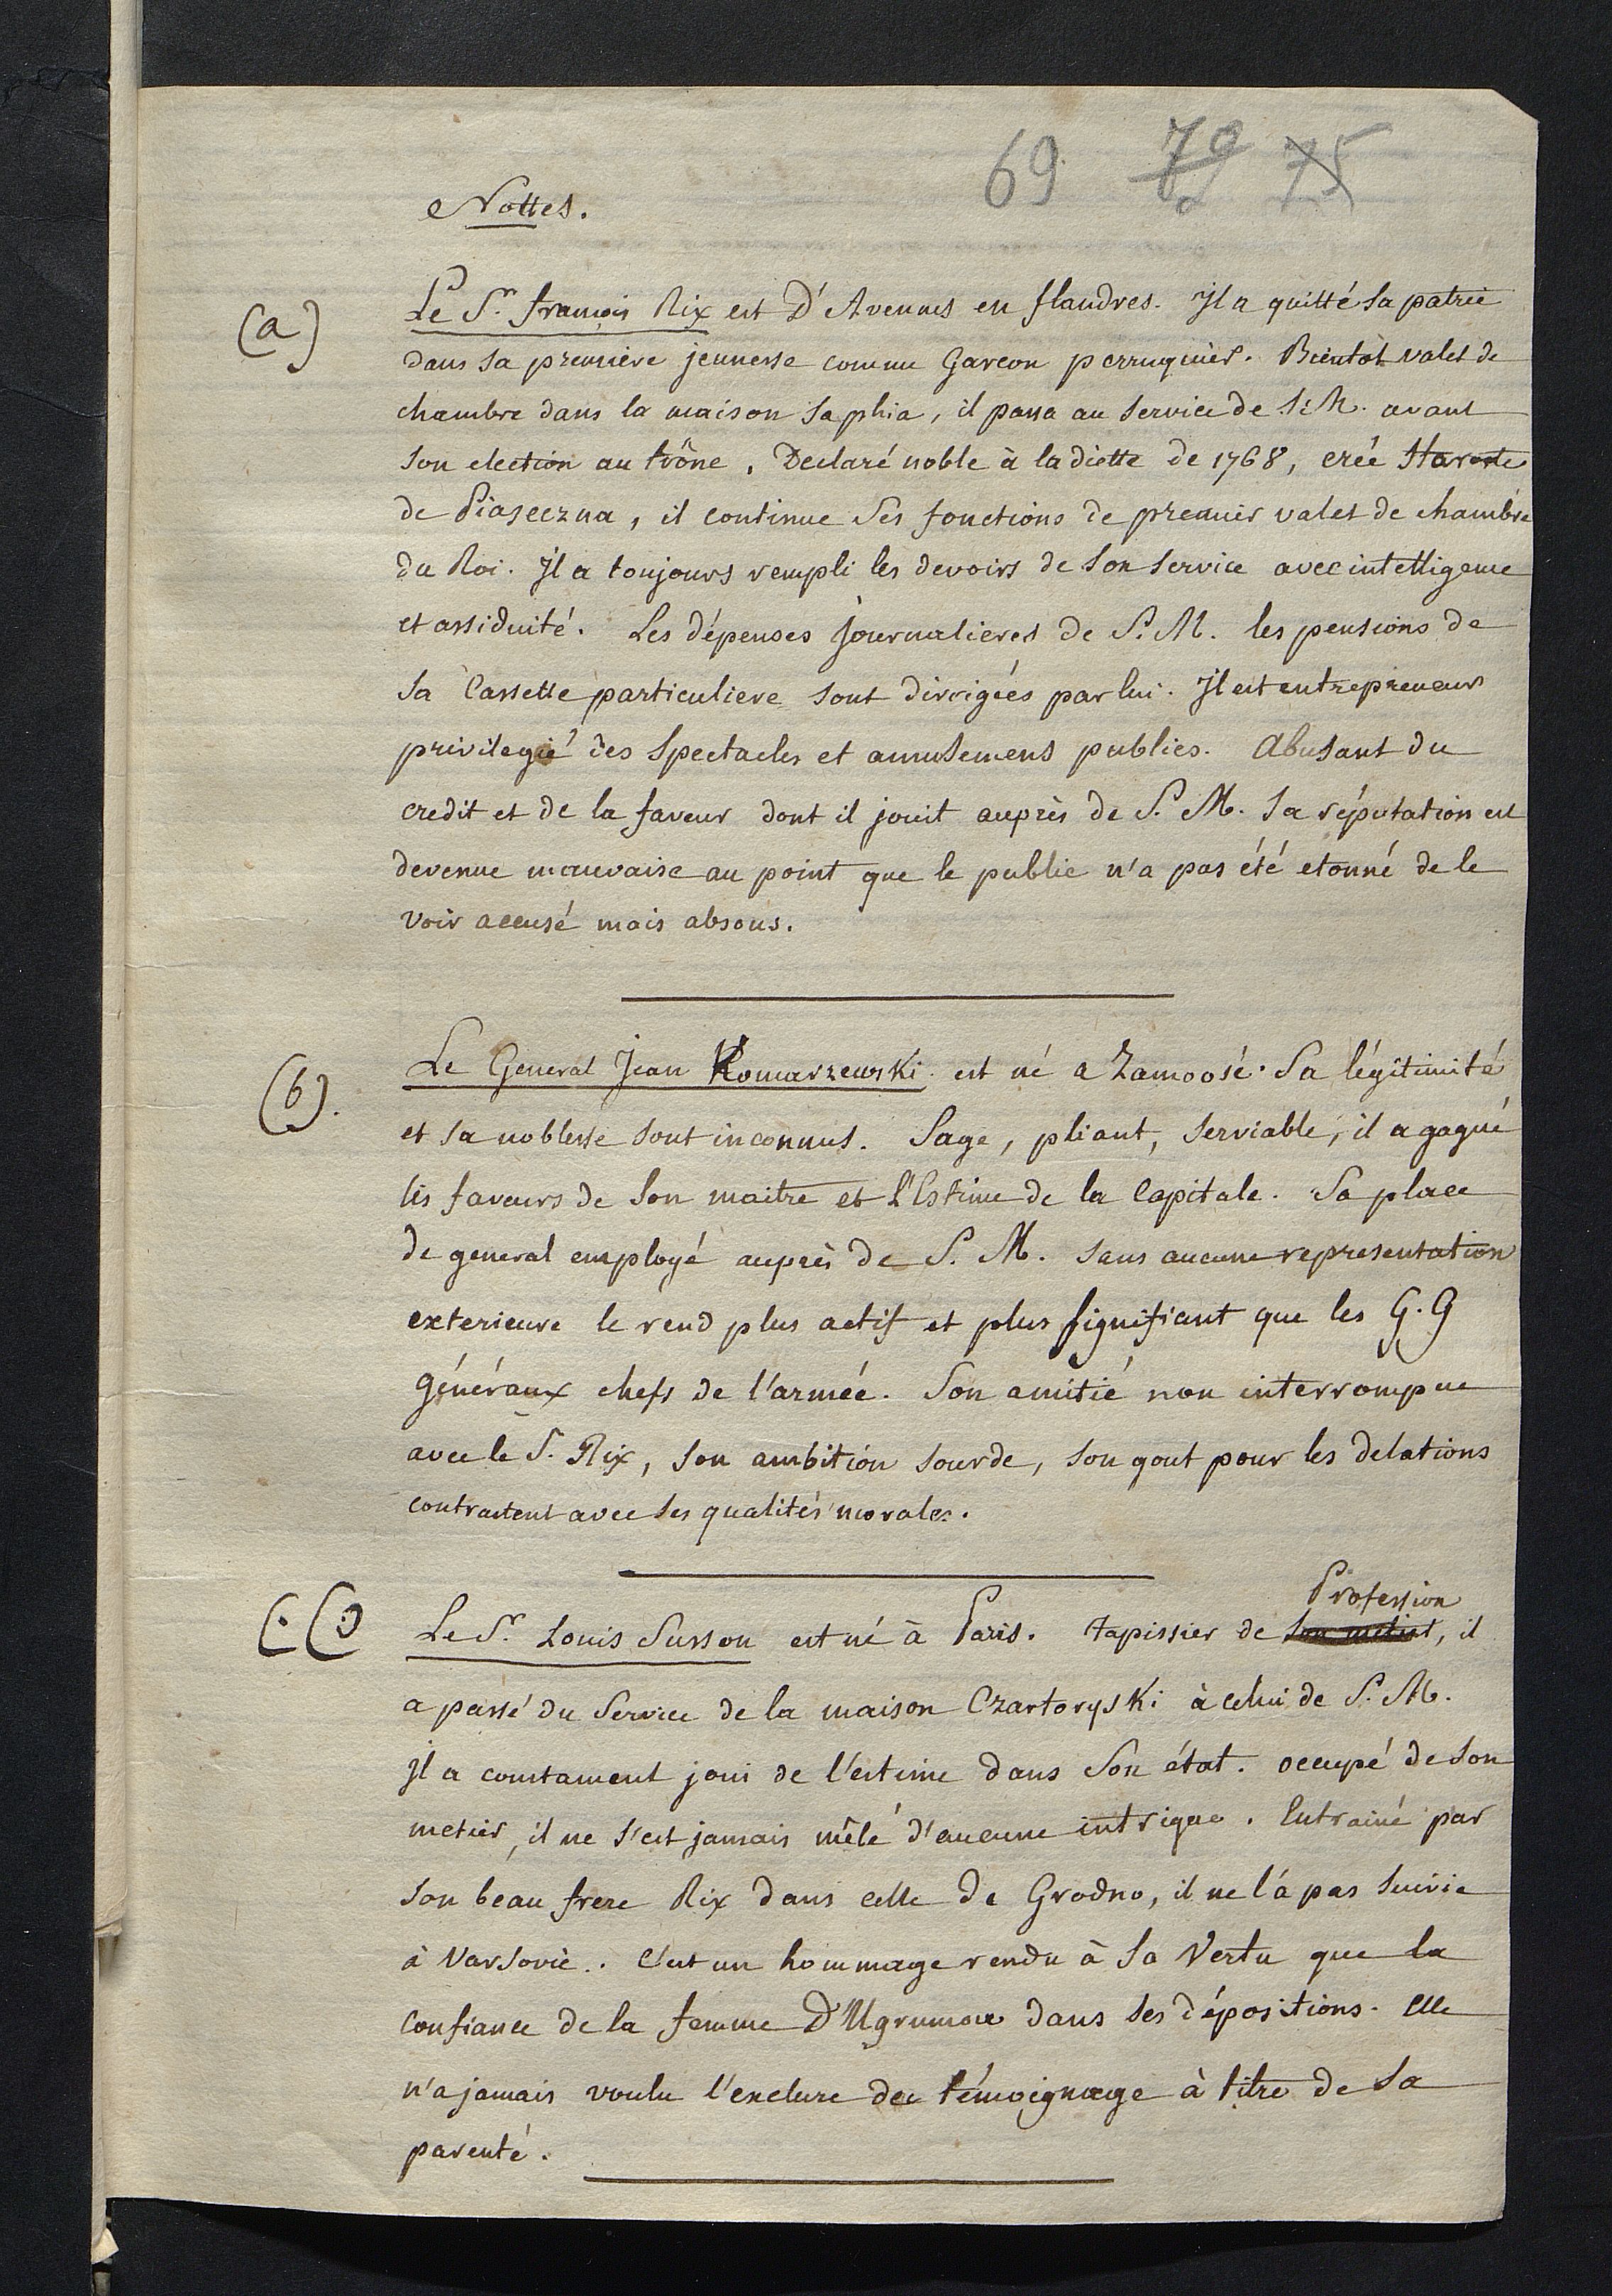 69 79 75
Nottes.
(a) Le Sr. françois Rix est D'Avennes en flandres. Jl a quitté sa patrie
dans sa premiere jeunesse comme Garcon perruquier. Bientôt valet de
chambre dans la maison Saphia, il passa au service de S. M. avant
son election au trône. Declaré noble à la diette de 1768, creé Staroste
de Piaseczna, il continue ses fonctions de premier valet de chambre
du Roi. Jl a toujours rempli les devoirs de son service avec intelligence
et assiduité. Les dépenses journalieres de S. M. les pensions de
sa Cassette particuliere sont dirrigées par lui. Jl est entrepreneur
privilegié des spectacles et amusemens publics. Abusant du
credit et de la faveur dont il jouit auprès de S. M. sa réputation est
devenue mauvaise au point que le public n'a pas été etonné de le
voir accusé mais absous.
(b). Le General Jean Komarzewski est né a Zamoosé. Sa légitimité
et sa noblesse sont inconnus. Sage, pliant, serviable, il a gagné
les faveurs de son maitre et l'Estime de la Capitale. Sa place
de general employé auprès de S. M. sans aucune representation
exterieure le rend plus actif et plus significant que les G. G
Généraux chefs de l'armée. Son amitié non interrompue
avec le S. Rix, son ambition sourde, son gout pour les delations
contrastent avec ses qualités morales.
Profession
Le Sr. Louis Susson est né à Paris. tapissier de son métier, il
a passé du Service de la maison Czartoryski à celui de S. M.
Jl a constament joui de l'estime dans son état. occupé de son
metier, il ne s'est jamais mêlé d'aucune intrigue. Entrainé par
son beau frere Rix dans celle de Grodno, il ne l'á pas suivie
à Varsovie. C'est un hommage rendu à sa Vertu que la
confiance de la femme D'Ugrumow dans ses dépositions. Elle
n'a jamais voulu l'exclure du témoignage à titre de sa
parenté.